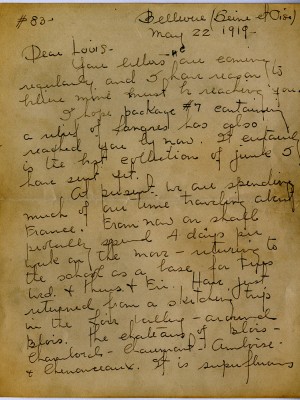 #83-
Bellevue (Seine et Oise)
May 22 1919-
Dear Louis-
Your letters are coming
regularly and I have reason to
believe mine must be reaching you.
I hope package #7 containing
a relief of has also
reached you by now. It certainly
is the best collection of I
have sent yet.
At present we are spending
much of our time traveling about
France. From now on shall
probably spend 4 days per
week on the move - returning to
the school as a base for
Wed. & Thurs & Fri. Have just
returned from a sketching trip
in the Loire valley - around
Blois. The chateaus of Blois-
Chambord- Chaumont- Amboise-
& Chenonceaux. It is superfluous